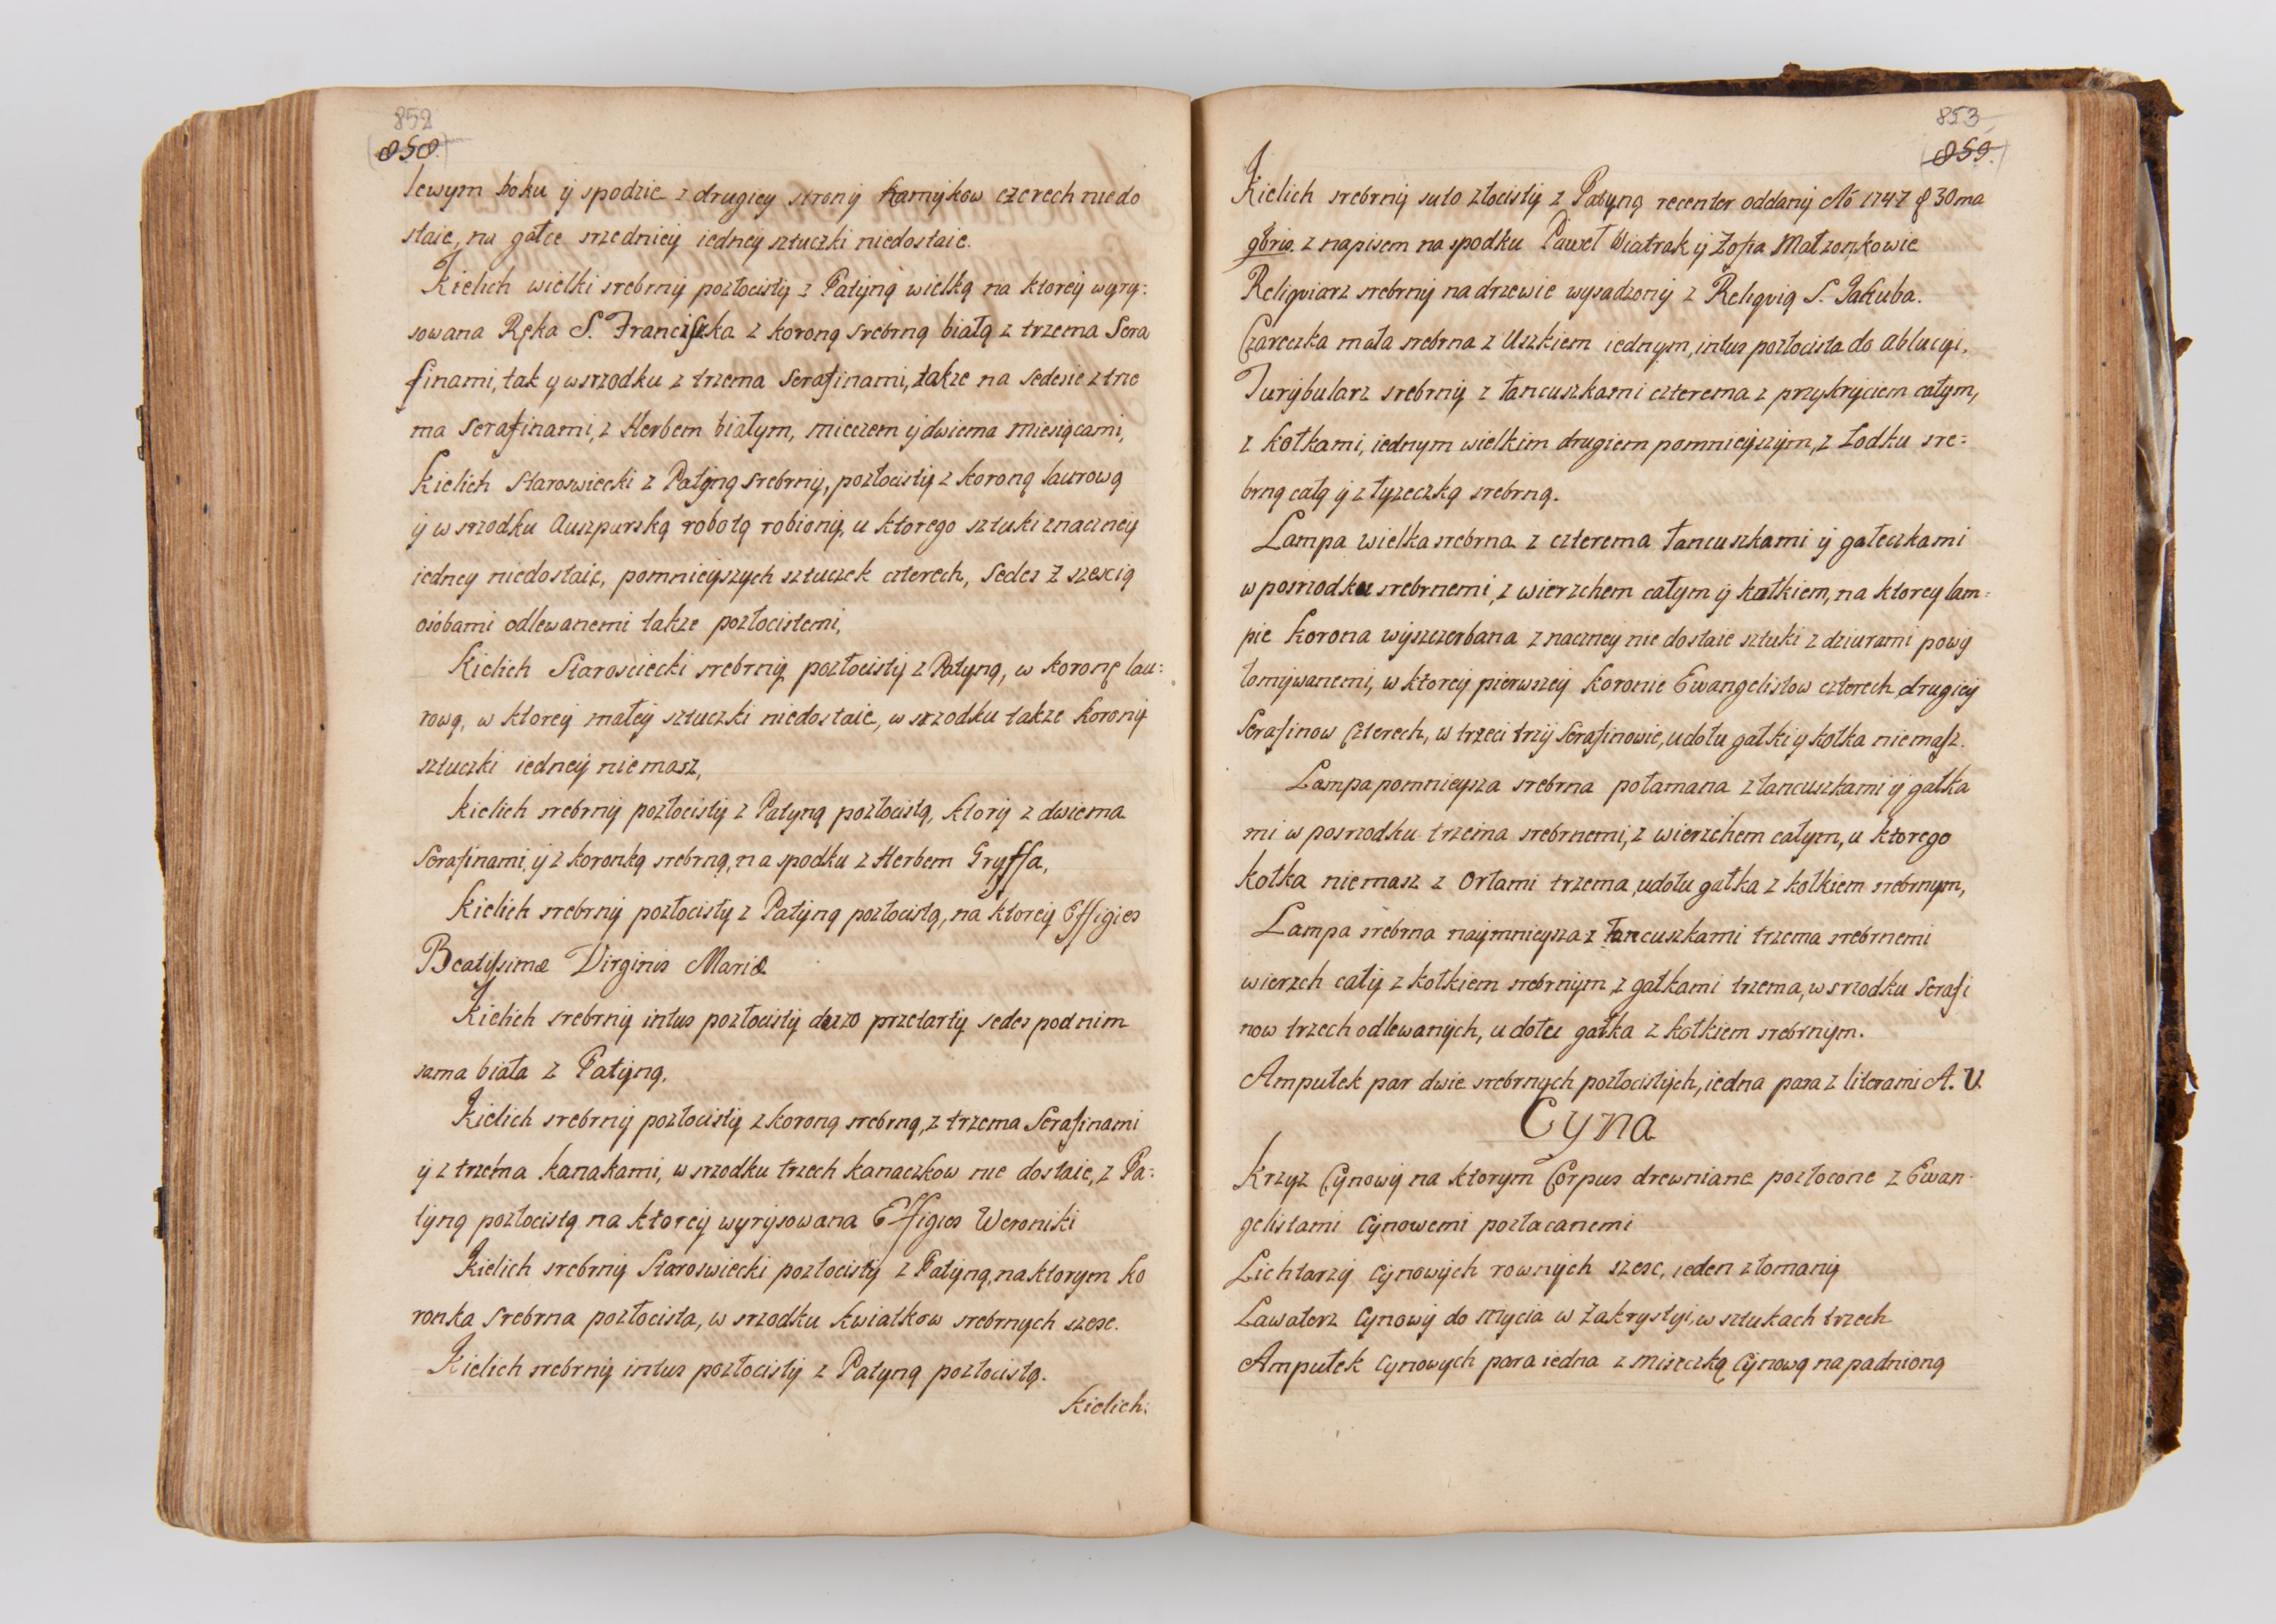 852
858.
lewym boku ÿ spodzie z drugiey stronÿ kamÿkow czterech niedo
staie, na gałce srzednieÿ iedneÿ sztuczki niedostaie.
Kielich wielki srebrnÿ pozłocistÿ z Patÿną wielką na ktoreÿ wyry:
sowana Ręka S. Franciszka z koroną srebrną białą z trzema Sera
finami, tak ÿ wsrzodku z trzema Serafinami, takze na sedesie z trze
ma Serafinami, z Herbem białym, mieczem ÿ dwiema miesiącami,
Kielich Staroswiecki z Patÿną srebrnÿ, pozłocistÿ z koroną laurową
ÿ w srzodku Auszpurską robotą robionÿ, u ktorego sztuki znaczneÿ
iedney niedostaie, pomnieyszych sztuczek czterech, Sedes z szescią
osóbami odlewanemi takze pozłocistemi,
Kielich Starosciecki srebrnÿ pozłocistÿ z Patÿną, w koronę lau:
rową, w ktoreÿ małeÿ sztuczki niedostaie, w srzodku takze koronÿ
sztuczki iedneÿ niemasz,
Kielich srebrnÿ pozłocistÿ z Patÿną pozłocistą, ktorÿ z dwiema
Serafinami, ÿ z koronką srebrną, na spodku z Herbem Gryffa,
Kielich srebrnÿ pozłocistÿ z Patÿną pozłocistą, na ktoreÿ Effigies
Beatissimæ Virginis Mariæ
Kielich srebrnÿ intus pozłocistÿ duzo przetartÿ sedes pod nim
sama biała z Patÿną.
Kielich srebrnÿ pozłocistÿ z koroną srebrną, z trzema Serafinami
ÿ z trzema kanakami, w srzodku trzech kanaczkow nie dostaie, z Pa:
tÿną pozłocistą na ktoreÿ wyrÿsowana Effigies Weroniki
Kielich srebrnÿ Staroswiecki pozłocistÿ z Patÿną, na ktorym ko
ronka srebrna pozłocista, w srzodku kwiatkow srebrnych szesc.
Kielich srebrnÿ intus pozłocistÿ z Patyną pozłocistą.
Kielich:
853
859.
Kielich srebrnÿ suto złocistÿ z Patyną recenter oddanÿ Aō 1747 30ma
gbris. z napisem na spodku Paweł Wiatrak ÿ Zofia Małzonkowie
Religviarz srebrnÿ na drzewie wysadzonÿ z Religvią S. Jakuba.
Czareczka mała srebrna z Uszkiem iednym, intus pozłocista do ablucyi,
Turÿbularz srebrnÿ z łancuszkami czterema z przykrÿciem całym,
z kołkami, iednym wielkim drugiem pomnieÿszÿm, z Łodku sre:
brną całą ÿ z łyzeczką srebrną.
Lampa wielka srebrna z czterema łancuszkami ÿ gałeczkami
w posrzodku srebrnemi, z wierzchem całym ÿ kołkiem, na ktorey lam:
pie korona wÿszczerbana znaczneÿ nie dostaie sztuki z dziurami powÿ
łomÿwanemi, w ktoreÿ pierwszeÿ koronie Ewangelistow czterech drugieÿ
Serafinow Czterech, w trzeci trzÿ Serafinowie, u dołu gałki ÿ kołka niemasz.
Lampa pomnieysza srebrna połamana z łancuszkami ÿ gałka
mi w posrzodku trzema srebrnemi, z wierzchem całym, u ktorego
kołka niemasz z Orłami trzema, u dołu gałka z kołkiem srebrnym,
Lampa srebrna naymnieysza z łancuszkami trzema srebrnemi
wierzch całÿ z kołkiem srebrnÿm, z gałkami trzema, w srzodku Serafi
now trzech odlewanÿch, u dołu gałka z kołkiem srebrnÿm.
Ampułek par dwie srebrnych pozłocistÿch, iedna para z literami A. V.
Cyna
Krzyz Cÿnowÿ na ktorym Corpus drewniane pozłocone z Ewan-
gelistami Cÿnowemi pozłacanemi
Lichtarzÿ Cÿnowÿch rownÿch szesc, ieden złomanÿ
Lawaterz Cynowÿ do mycia w Zakrystyi, w sztukach trzech
Ampułek Cynowych para iedna z miseczką Cÿnową napadnioną